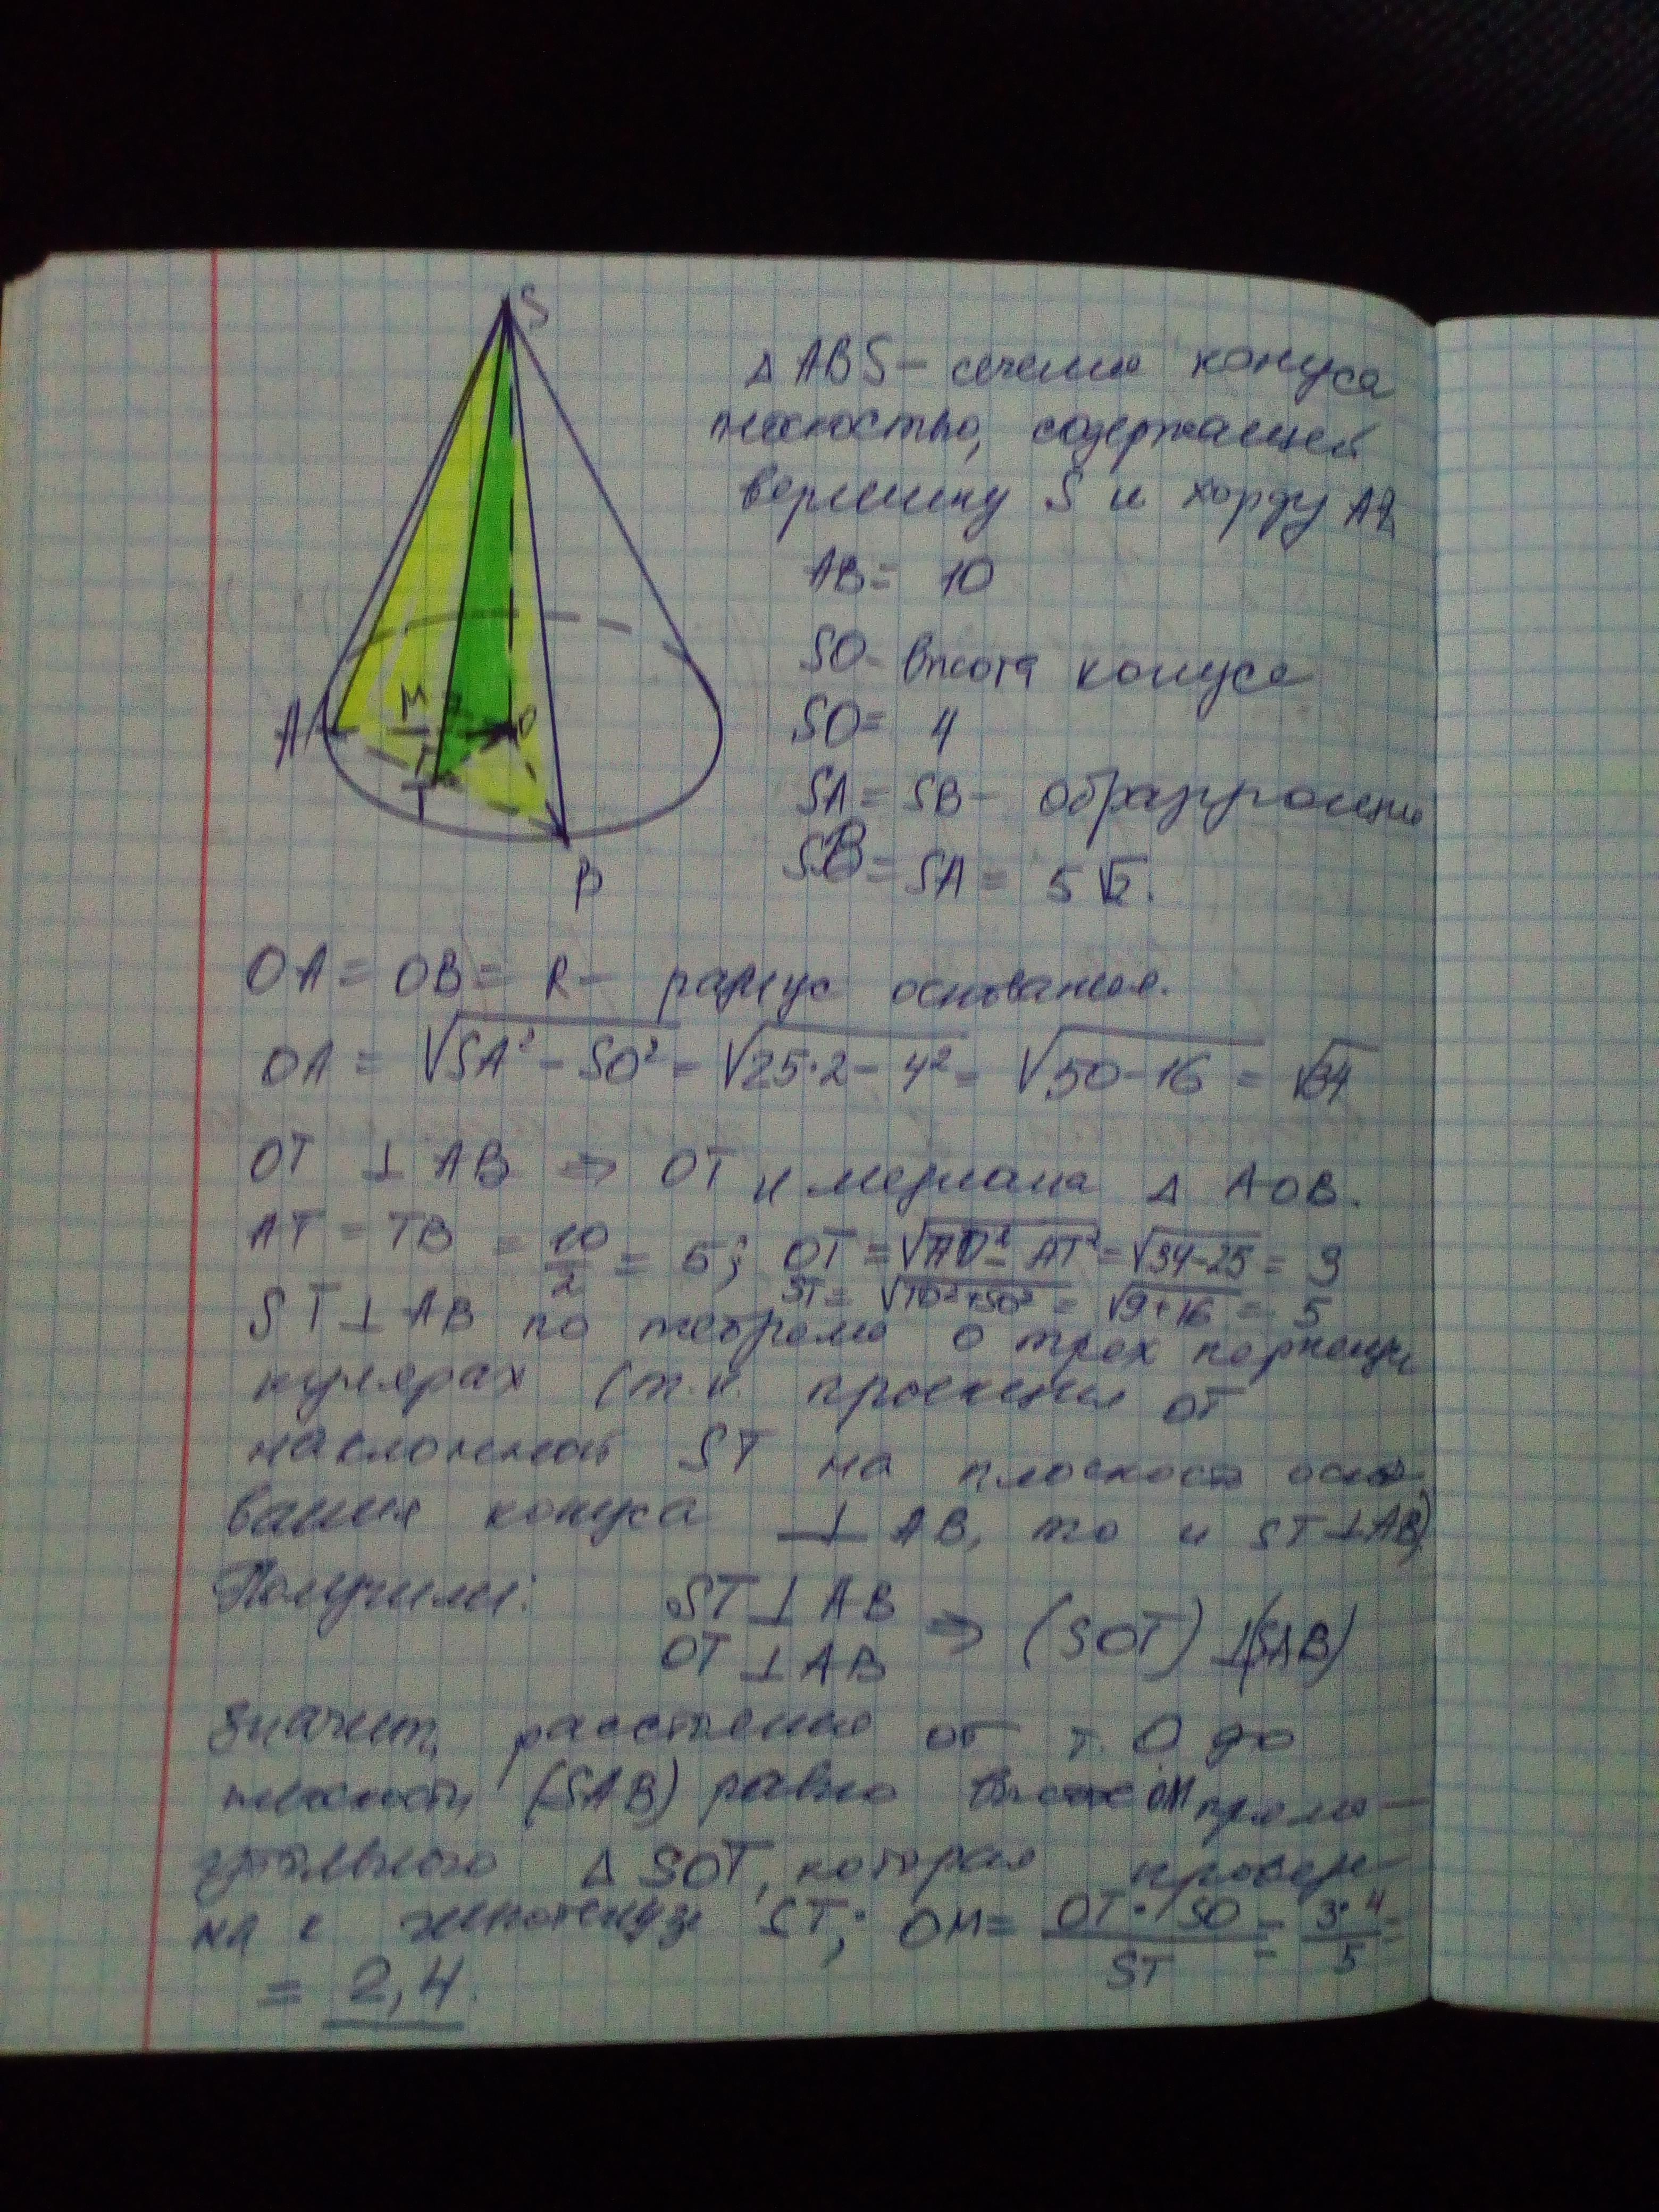 S
A
M
O
T
B
Δ ABS - сечение конуса
плоскостью, содержащей
вершину S и хорду AB
AB = 10
SO - высота конуса
SO = 4
SA = SB - образующие
SB = SA = 5√2.
OA = OB = R - радиус основания.
OA = √SA² - SO² = √25·2 - 4² = √50-16 = √34
OT ⊥ AB ⇒ OT и медиана Δ AOB.
AT = TB = 10/2 = 5; OT = √AO² - AT² = √34-25 = 3
ST = √TO²+SO² = √9+16 = 5
ST ⊥ AB по теореме о трех перпенди
кулярах (т.к. проекция OT
наклонной ST на плоскость осно-
вания конуса ⊥ AB, то и ST ⊥ AB)
Получили: ST ⊥ AB
OT ⊥ AB ⇒ (SOT) ⊥ (SAB)
Значит, расстояние от т. O до
плоскости (SAB) равно высоте OM прямо-
угольного Δ SOT, которая проведе-
на к гипотенузе ST; OM = OT·SO/ST = 3·4/5 =
= 2,4.